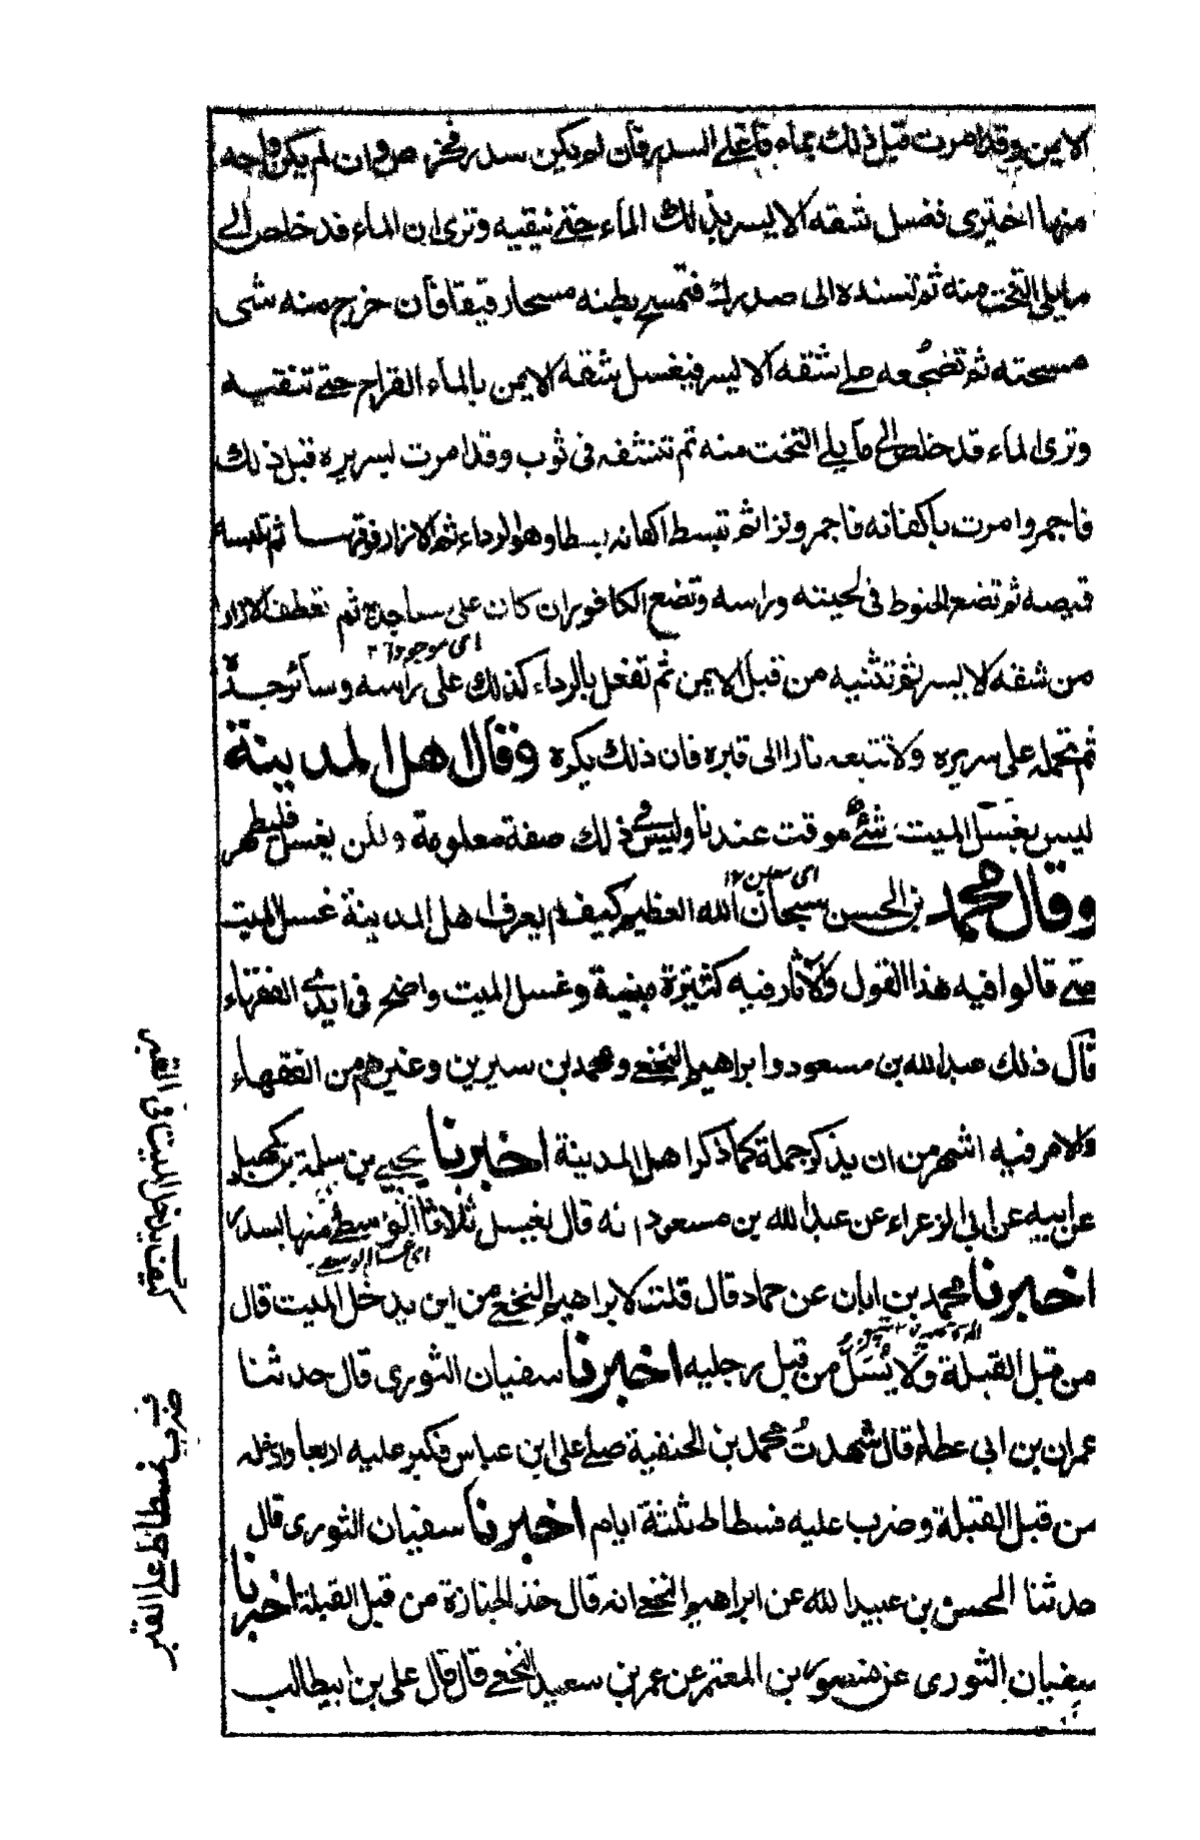 الايمن وقد امرت قبل ذلك بماء فاغلى السدر فان لم يكن سدر فحرض وان لم يكن واحد
منهما اخترى فغسل شقه الايسر بذلك الماء حتى ينقيه وترى ان الماء قد خلص الى
ما يلى التخت منه ثم تسنده الى صدرك فتمسح بطنه مسحا رقيقا فان خرج منه شى
مسحته ثم تضجعه على شقه الايسر فيغسل شقه الايمن بالماء القراح حتى تنقيه
وترى الماء قد خلص الى ما يلى التخت منه ثم تنشفه فى ثوب وقد امرت بسريره قبل ذلك
فاجمر وامرت باكفانه فاجمر وترا ثم تبسط اكفانه بسطا وهو الرداء ثم الازار فوقها ثم تلبسه
قميصه ثم تضع الحنوط فى لحيته وراسه وتضع الكافور ان كان على مساجده ثم تعطف الازار
اى موجودا ١٢
من شقه الايسر ثم تثنيه من قبل الايمن ثم تفعل بالرداء كذلك على راسه وسائر جسده
ثم تحمله على سريره ولا تتبعه نارا الى قبره فان ذلك يكره وقال اهل المدينة
ليس بغسل الميت شئ موقت عندنا وليس فى ذلك صفة معلومة ولكن يغسل فليطهر
وقال محمد بن الحسن سبحان الله العظيم كيف لم يعرف اهل المدينة غسل الميت
حتى قالوا فيه هذا القول والآثار فيه كثيرة مبنية وغسل الميت واضح فى ايدى الفقهاء
قال ذلك عبد الله بن مسعود وابراهيم النخعى ومحمد بن سيرين وغيرهم من الفقهاء
والامر فيه اشهر من ان يذكر جملة كما ذكر اهل المدينة اخبرنا يحيى بن سلمة بن كهيل
عن ابيه عن ابى الزعراء عن عبد الله بن مسعود انه قال يغسل ثلاثا الوسطى منها بسدر
اخبرنا محمد بن ابان عن حماد قال قلت لابراهيم النخعى من اين يدخل الميت قال
من قبل القبلة ولا يُسَلّ من قبل رجليه اخبرنا سفيان الثورى قال حدثنا
عمران بن ابى عطاء قال شهدت محمد بن الحنفية صلى على ابن عباس فكبر عليه اربعا وادخله
من قبل القبلة وضرب عليه فسطاط ثلثة ايام اخبرنا سفيان الثورى قال
حدثنا الحسن بن عبيد الله عن ابراهيم النخعى انه قال خذ الجنازة من قبل القبلة اخبرنا
سفيان الثورى عن منصور بن المعتمر عن عمر بن سعيد النخعى قال قال على بن ابيطالب
كيف يدخل الميت فى القبر
ضرب فسطاط على القبر